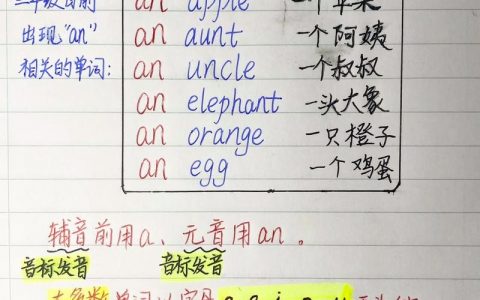 an apple 一个苹果
出现"an" an aunt 一个阿姨
相关的单词: an uncle 一个叔叔
an elephant 一头大象
an orange 一只橙子
an egg 一个鸡蛋
辅音前用a、元音用an。
音标发音 音标发音
单词以字母